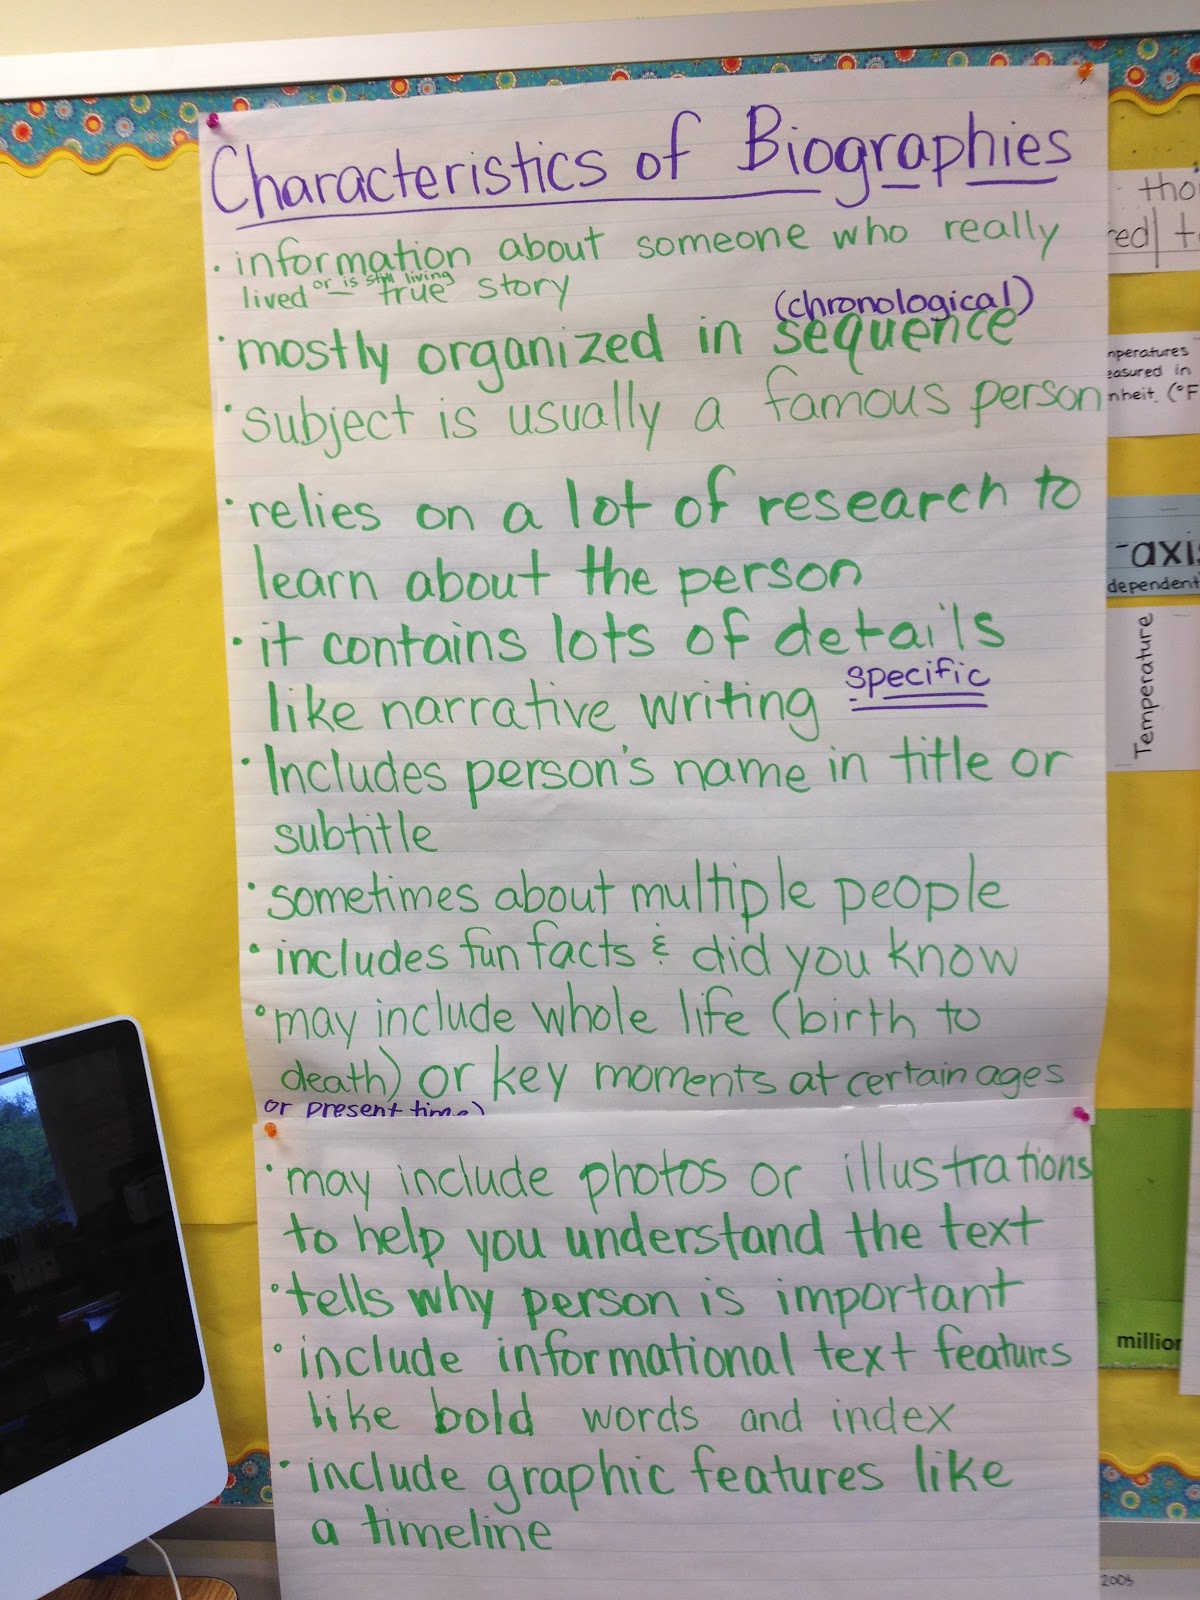 Characteristics of Biographies
• information about someone who really
or is still living
lived true story
(chronological)
• mostly organized in sequence
• subject is usually a famous person
• relies on a lot of research to
learn about the person
• it contains lots of details
specific
like narrative writing
• Includes person's name in title or
subtitle
• sometimes about multiple people
• includes fun facts & did you know
• may include whole life (birth to
death) or key moments at certain ages
or present time)
• may include photos or illustrations
to help you understand the text
• tells why person is important
• include informational text features
like bold words and index
• include graphic features like
a timeline
tho
red t
mperatures
easured in
nheit. (°F
-axis
dependent
Temperature
million